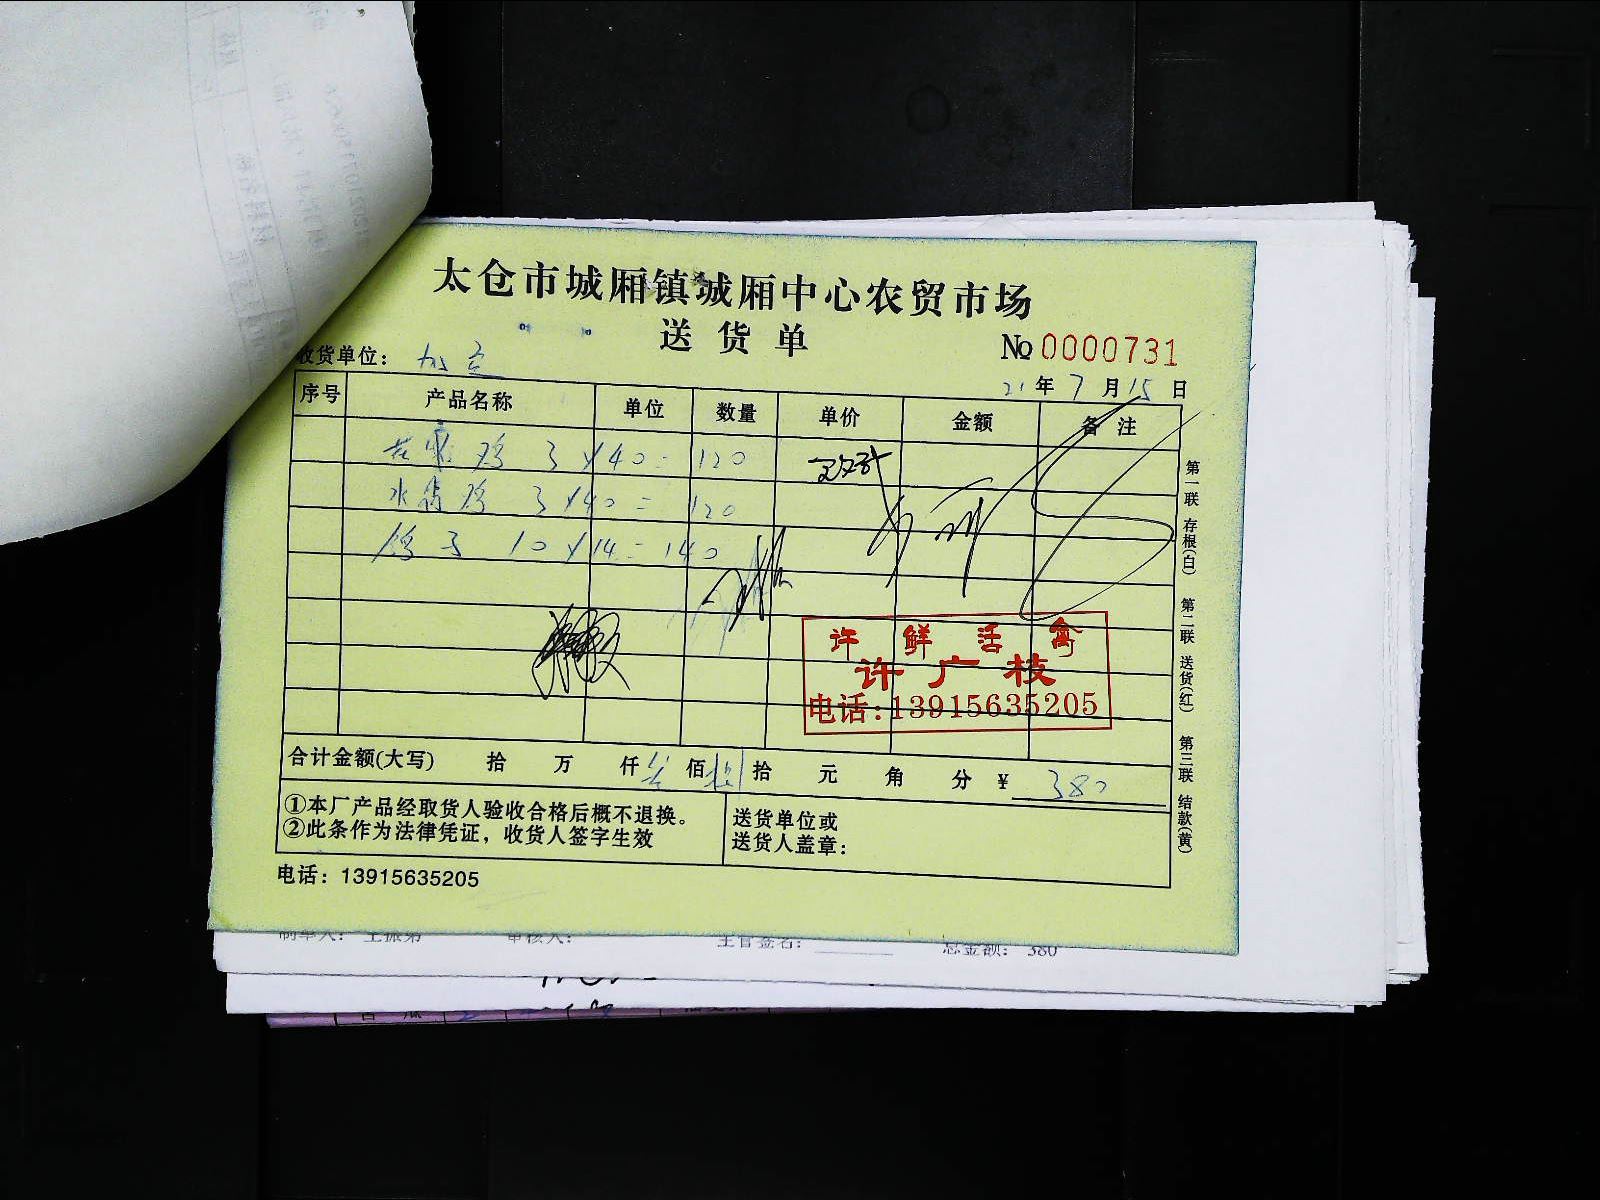 太仓市城厢镇城厢中心农贸市场
送货单
№ 0000731
收货单位：
21年7月15日
序号 产品名称 单位 数量 单价 金额 备注
鸡 3×40=120
水 鸡 3×40=120
鸽子 10×14=140
许鲜活禽
许广枝
电话:13915635205
第一联 存根(白) 第二联 送货(红) 第三联 结款(黄)
合计金额(大写) 拾 万 仟 叁 佰 捌 拾 元 角 分 ¥ 380
①本厂产品经取货人验收合格后概不退换。
②此条作为法律凭证，收货人签字生效
送货单位或
送货人盖章：
电话：13915635205
制单人： 王振弟 审核人： 主管签名： 总金额： 380